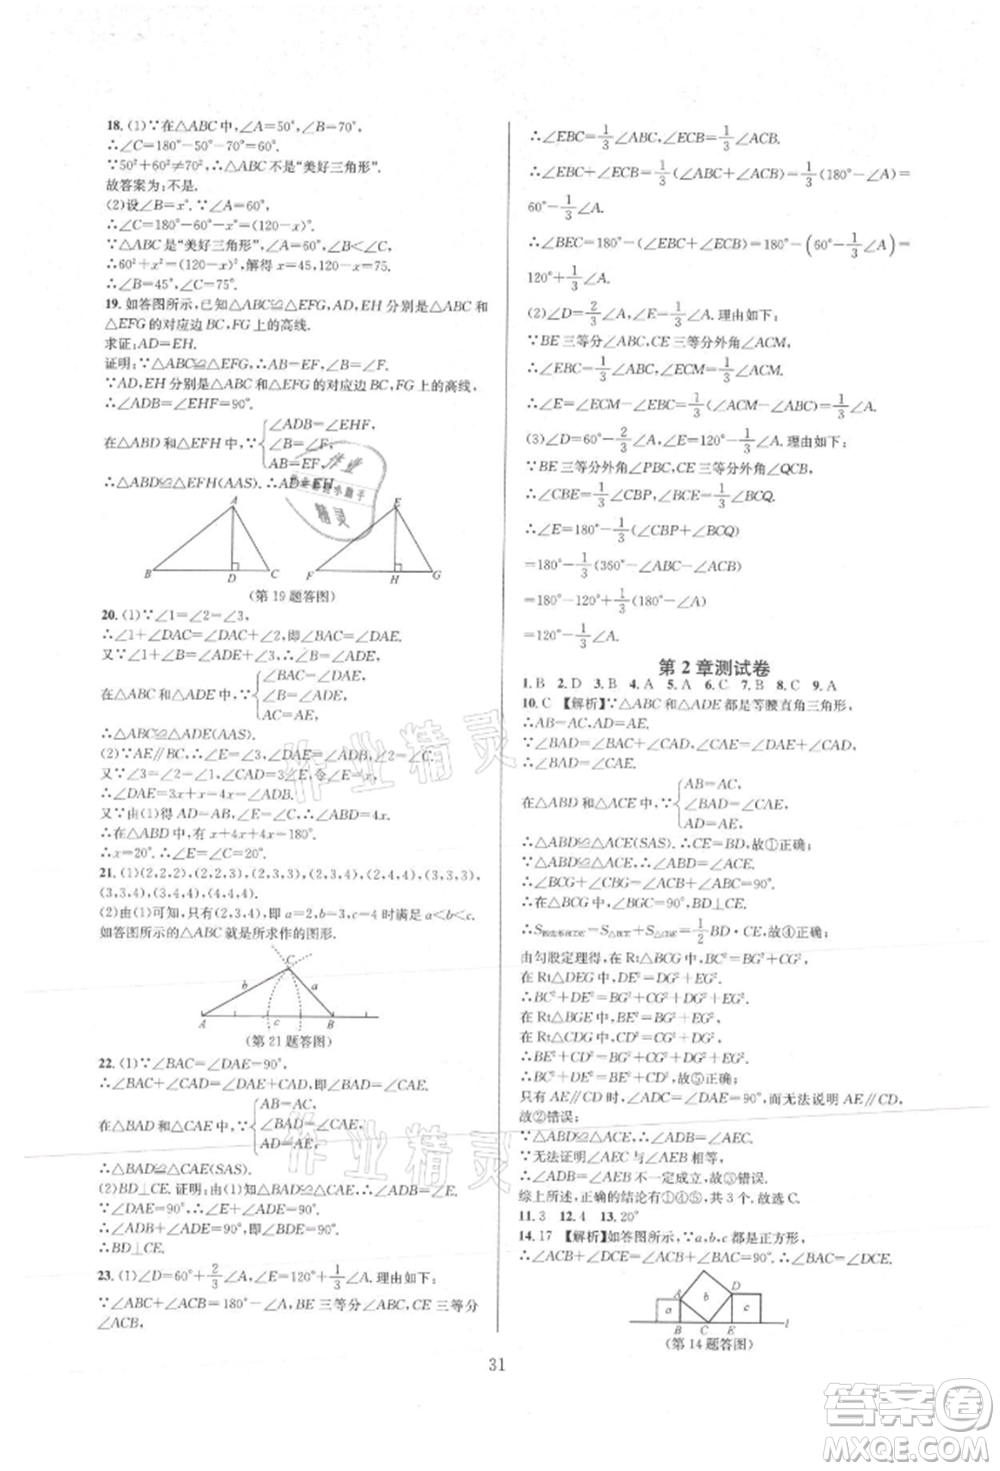 18. (1)∵在△ABC中,∠A=50°,∠B=70°,
∴∠C=180°-50°-70°=60°.
∵50²+60²≠70²,∴△ABC不是“美好三角形”.
故答案为:不是.
(2)设∠B=x°.∵∠A=60°,
∴∠C=180°-60°-x°=(120-x)°.
∵△ABC是“美好三角形”,
∴60²+x²=(120-x)²,解得x=45或x=75.
∴∠B=45°,∠C=75°.
19. 如答图所示,已知△ABC≌△EFG,AD,EH分别是△ABC和
△EFG的对应边BC,FG上的高线.
求证:AD=EH.
证明:∵△ABC≌△EFG,∴AB=EF,∠B=∠F.
∵AD,EH分别是△ABC和△EFG的对应边BC,FG上的高线,
∴∠ADB=∠EHF=90°.
∠ADB=∠EHF,
在△ABD和△EFH中,∵ ∠B=∠F,
AB=EF,
∴△ABD≌△EFH(AAS).∴AD=EH.
A E
B D C F H G
(第19题答图)
20. (1)∵∠1=∠2=∠3,
∴∠1+∠DAC=∠DAC+∠2,即∠BAC=∠DAE.
又∵∠DAC=∠DAC,∠2=∠3,∴∠C=∠E.
∠BAC=∠DAE,
在△ABC和△ADE中,∵ ∠C=∠E,
AC=AE,
∴△ABC≌△ADE(AAS).
(2)∵AE∥BC,∴∠E=∠3,∠DAE=∠ADB,∠2=∠C.
又∵∠3=∠2=∠1,令∠E=x,
∴∠DAE=3x+x=4x=∠ADB.
又∵由(1)得AD=AB,∴∠ABD=4x.
∴在△ABD中,有x+4x+4x=180°.
∴x=20°.∴∠E=∠C=20°.
21. (1)(2,2,2),(2,2,3),(2,3,3),(2,3,4),(2,4,4),(3,3,3),
(3,3,4),(3,4,4),(4,4,4).
(2)由(1)可知,只有(2,3,4),即a=2,b=3,c=4时满足a<b<c.
如答图所示的△ABC就是所求作的图形.
C
b a
A c B
(第21题答图)
22. (1)∵∠BAC=∠DAE=90°,
∴∠BAC+∠CAD=∠DAE+∠CAD,即∠BAD=∠CAE.
AB=AC,
在△BAD和△CAE中,∵ ∠BAD=∠CAE,
AD=AE,
∴△BAD≌△CAE(SAS).
(2)BD⊥CE.证明:由(1)知△BAD≌△CAE,∴∠ADB=∠E.
∵∠DAE=90°,∴∠E+∠ADE=90°.
∴∠ADB+∠ADE=90°,即∠BDE=90°.
∴BD⊥CE.
23. (1)∠D=60°+2/3∠A.理由如下:
∵∠ABC+∠ACB=180°-∠A,BE三等分∠ABC,CE三等分
∠ACB,
∴∠EBC=1/3∠ABC,∠ECB=1/3∠ACB.
∴∠EBC+∠ECB=1/3(∠ABC+∠ACB)=1/3(180°-∠A)=
60°-1/3∠A.
∴∠BEC=180°-(∠EBC+∠ECB)=180°-(60°-1/3∠A)=
120°+1/3∠A.
(2)∠D=2/3∠A,∠E=1/3∠A.理由如下:
∵BE三等分∠ABC,CE三等分外角∠ACM,
∴∠EBC=1/3∠ABC,∠ECM=1/3∠ACM.
∴∠E=∠ECM-∠EBC=1/3(∠ACM-∠ABC)=1/3∠A.
(3)∠D=60°-2/3∠A,∠E=120°-1/3∠A.理由如下:
∵BE三等分外角∠PBC,CE三等分外角∠QCB,
∴∠CBE=1/3∠CBP,∠BCE=1/3∠BCQ.
∴∠E=180°-1/3(∠CBP+∠BCQ)
=180°-1/3(360°-∠ABC-∠ACB)
=180°-120°+1/3(180°-∠A)
=120°-1/3∠A.
第2章测试卷
1. B 2. D 3. B 4. A 5. A 6. C 7. B 8. C 9. A
10. C 【解析】∵△ABC和△ADE都是等腰直角三角形,
∴AB=AC,AD=AE.
∵∠BAD=90°+∠CAD,∠CAE=90°+∠CAD,
∴∠BAD=∠CAE.
AB=AC,
在△ABD和△ACE中,∵ ∠BAD=∠CAE,
AD=AE,
∴△ABD≌△ACE(SAS).∴CE=BD,故①正确;
∵△ABD≌△ACE,∴∠ABD=∠ACE.
∴∠BCG+∠CBG=∠ACB+∠ABC=90°.
∴∠BGC=90°.∴BD⊥CE.
∴S四边形BCDE=S△BCE+S△CDE=1/2BD·CE,故④正确;
由勾股定理得,在Rt△BCG中,BC²=BG²+CG²,
在Rt△DEG中,DE²=DG²+EG²,
∴BC²+DE²=BG²+CG²+DG²+EG².
在Rt△BGE中,BE²=BG²+EG²,
在Rt△CDG中,CD²=CG²+DG²,
∴BE²+CD²=BG²+CG²+DG²+EG².
∴BC²+DE²=BE²+CD²,故⑤正确;
只有AE∥CD时,∠AEC=∠DCE,而无法说明AE∥CD,
故②错误;
∵△ABD≌△ACE,∴∠ADB=∠AEC.
∵无法证明∠AEB与∠AEC相等,
∴∠ADB=∠AEB不一定成立,故③错误.
综上所述,正确的结论有①④⑤,共3个.故选C.
11. 3 12. 4 13. 20°
14. 17 【解析】如答图所示,∵a,b,c都是正方形,
∴∠ACB+∠DCE=∠ACB+∠BAC=90°.∴∠BAC=∠DCE.
A D
a b c
B C E l
(第14题答图)
31
作业精灵
作业精灵
作业
精灵
答案圈
MXQE.COM